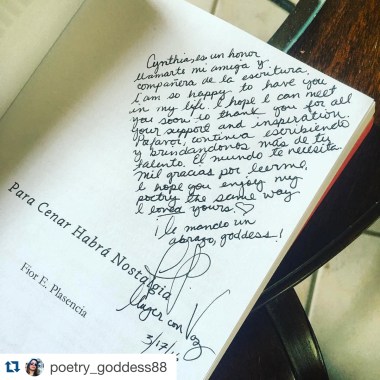 Cynthia, es un honor
llamarte mi amiga y
compañera de la escritura.
I am so happy to have you
in my life. I hope I can meet
you soon to thank you for all
your support and inspiration.
Porfavor, continua escribiendo
y brindandonos más de tu
talento. El mundo te necesita.
Mil gracias por leerme.
I hope you enjoy my
poetry the same way
I loved yours. ♡
¡le mando un
abrazo, goddess!
Mujer con Voz
3/17/16
Para Cenar Habrá Nostalgia
Fior E. Plasencia
poetry_goddess88